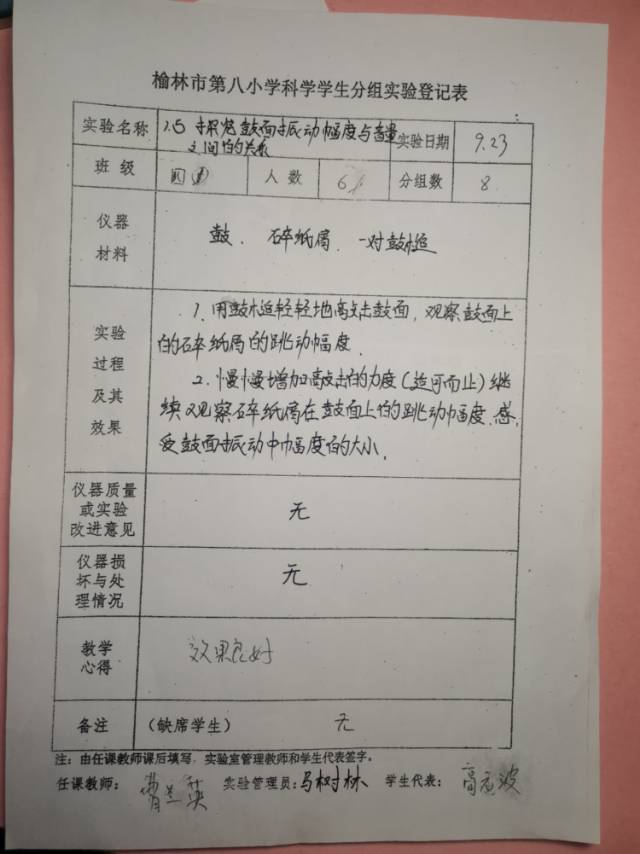 榆林市第八小学科学学生分组实验登记表
实验名称 1.5 探究鼓面振动幅度与音量之间的关系 实验日期 9.23
班级 四 人数 61 分组数 8
仪器材料 鼓、碎纸屑、一对鼓槌
实验过程及其效果
1、用鼓槌轻轻地敲击鼓面,观察鼓面上
的碎纸屑的跳动幅度.
2、慢慢增加敲击的力度(适可而止)继
续观察碎纸屑在鼓面上的跳动幅度.感
受鼓面振动中幅度的大小.
仪器质量或实验改进意见 无
仪器损坏与处理情况 无
教学心得 效果良好
备注 (缺席学生) 无
注:由任课教师课后填写,实验室管理教师和学生代表签字。
任课教师: 曹兰英 实验管理员:马树林 学生代表: 高